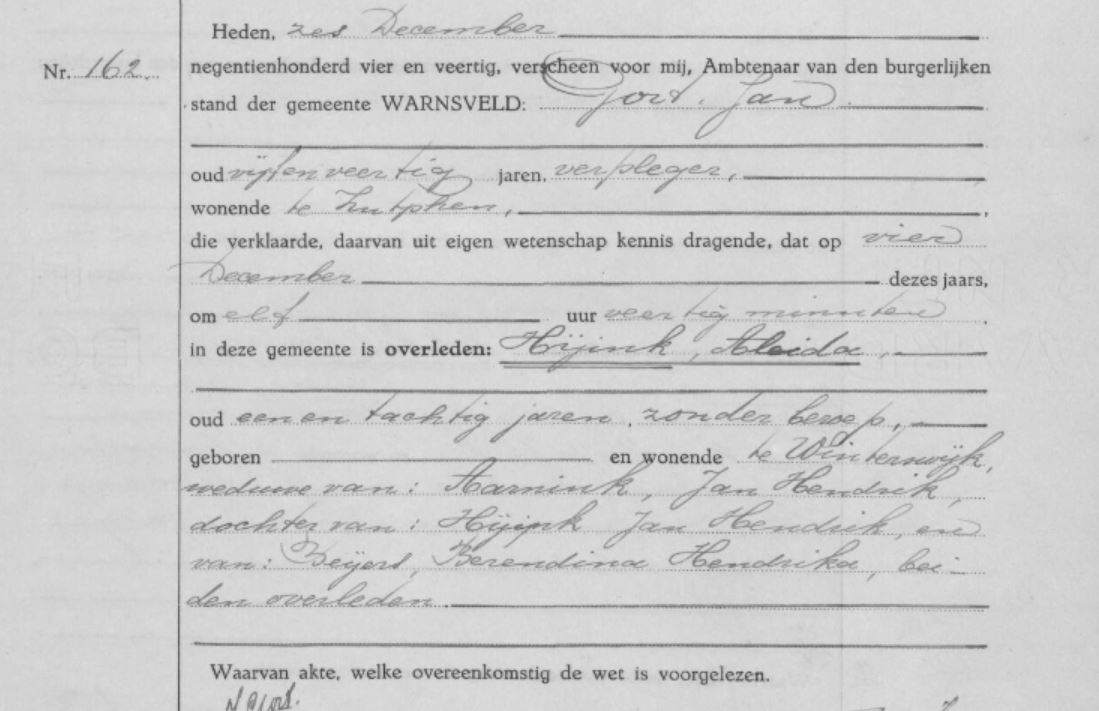 Heden, zes December
Nr. 162. negentienhonderd vier en veertig, verscheen voor mij, Ambtenaar van den burgerlijken
stand der gemeente WARNSVELD: Gort, Jan
oud vijfenveertig jaren, verpleger,
wonende te Zutphen,
die verklaarde, daarvan uit eigen wetenschap kennis dragende, dat op vier
December dezes jaars,
om elf uur veertig minuten
in deze gemeente is overleden: Hijink, Aleida,
oud eenentachtig jaren, zonder beroep,
geboren en wonende te Winterswijk,
weduwe van: Harnink, Jan Hendrik,
dochter van: Hijink Jan Hendrik, en
van: Beijers, Berendina Hendrika, bei-
den overleden.
Waarvan akte, welke overeenkomstig de wet is voorgelezen.